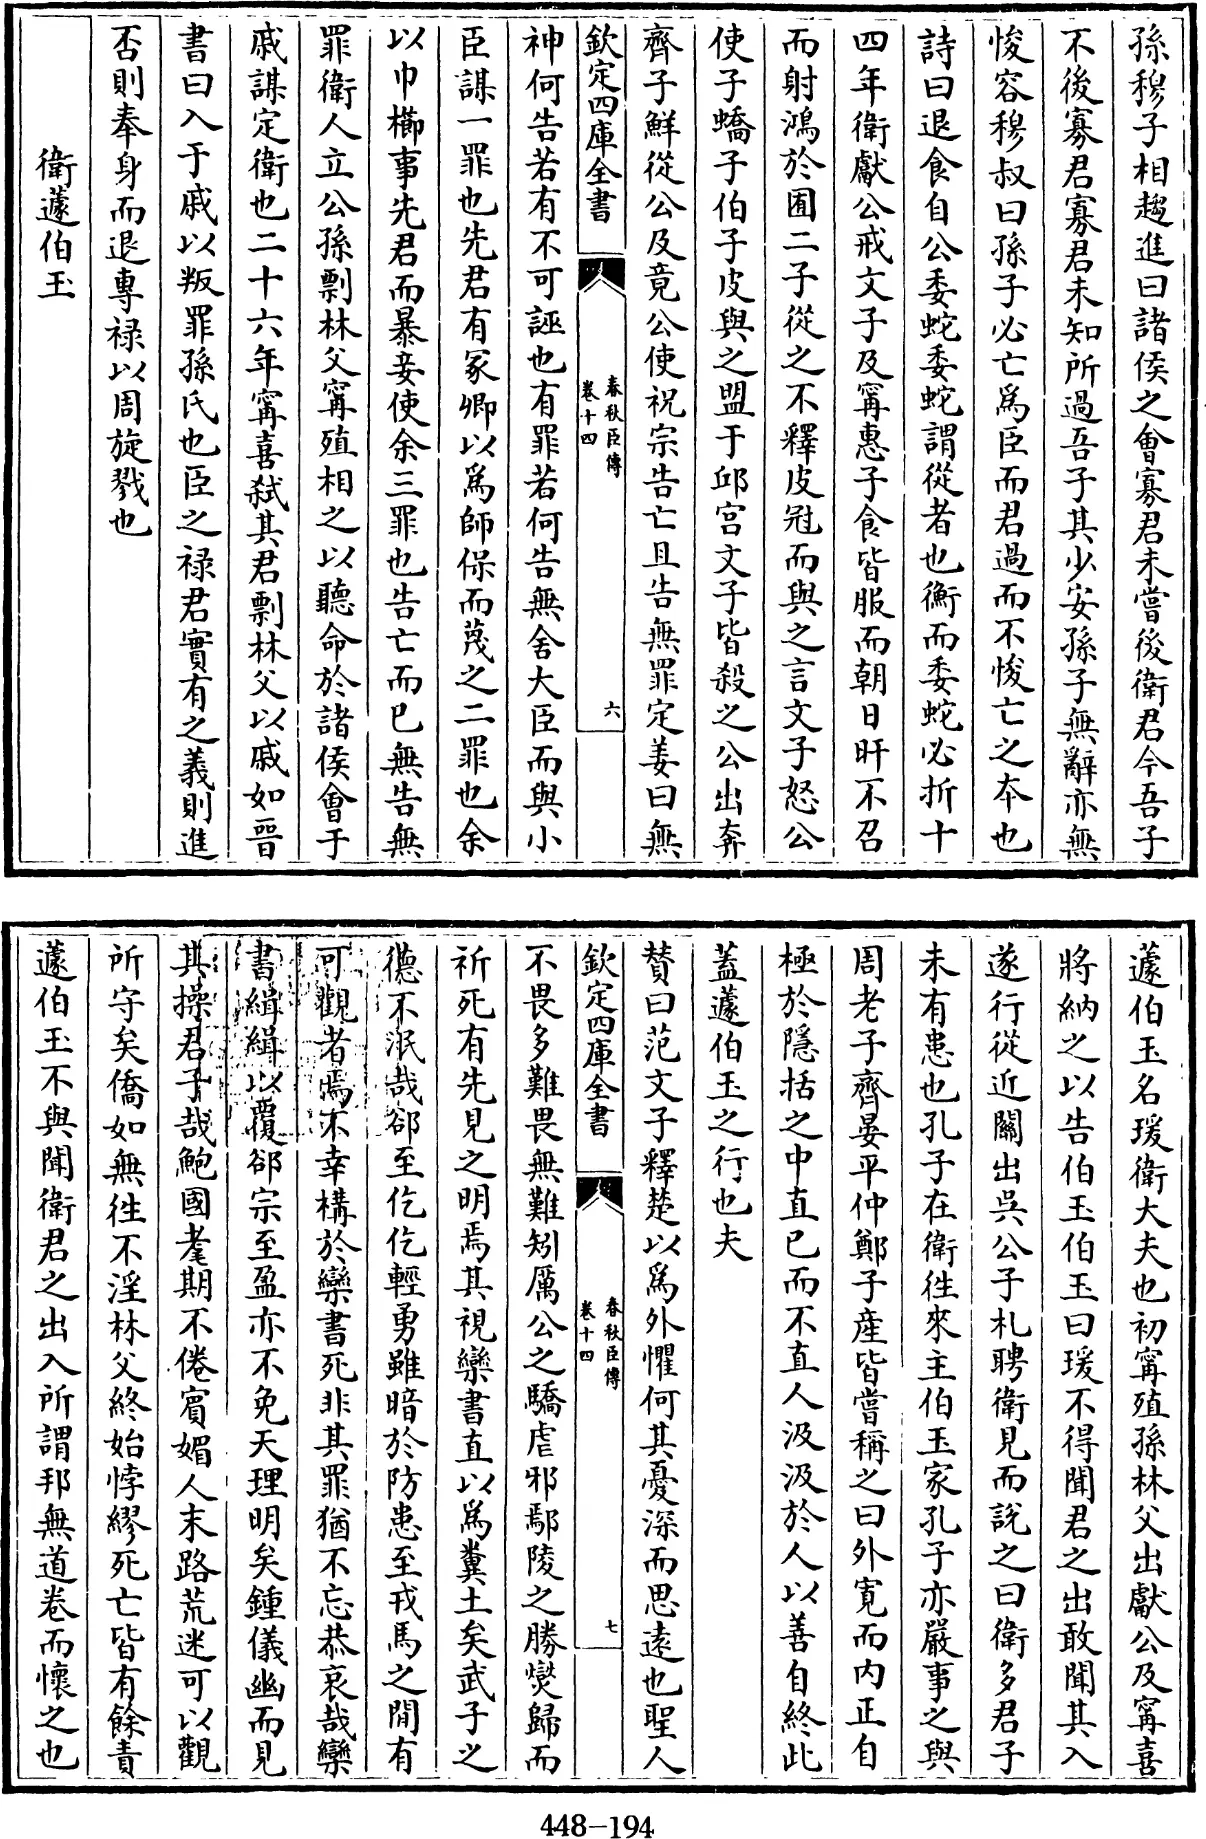 孫穆子相趨進曰諸侯之會寡君未嘗後衛君今吾子
不後寡君寡君未知所過吾子其少安孫子無辭亦無
悛容穆叔曰孫子必亡為臣而君過而不悛亡之本也
詩曰退食自公委蛇委蛇謂從者也衡而委蛇必折十
四年衛獻公戒文子及甯惠子食皆服而朝日旰不召
而射鴻於囿二子從之不釋皮冠而與之言文子怒公
使子蟜子伯子皮與之盟于邱宫文子皆殺之公出奔
齊子鮮從公及竟公使祝宗告亡且告無罪定姜曰無
欽定四庫全書
春秋臣傳
卷十四
六
神何告若有不可誣也有罪若何告無舍大臣而與小
臣謀一罪也先君有冢卿以為師保而蔑之二罪也余
以巾櫛事先君而暴妾使余三罪也告亡而已無告無
罪衛人立公孫剽林父甯殖相之以聽命於諸侯會于
戚謀定衛也二十六年甯喜弑其君剽林父以戚如晉
書曰入于戚以叛罪孫氏也臣之禄君實有之義則進
否則奉身而退專禄以周旋戮也
衛蘧伯玉
蘧伯玉名瑗衛大夫也初甯殖孫林父出獻公及甯喜
將納之以告伯玉伯玉曰瑗不得聞君之出敢聞其入
遂行從近關出吳公子札聘衛見而說之曰衛多君子
未有患也孔子在衛徃來主伯玉家孔子亦嚴事之與
周老子齊晏平仲鄭子產皆嘗稱之曰外寬而内正自
極於隱括之中直已而不直人汲汲於人以善自終此
蓋蘧伯玉之行也夫
贊曰范文子釋楚以為外懼何其憂深而思遠也聖人
欽定四庫全書
春秋臣傳
卷十四
七
不畏多難畏無難矧厲公之驕虐邪鄢陵之勝爕歸而
祈死有先見之明焉其視欒書直以為糞土矣武子之
德不泯哉郤至仡仡輕勇雖暗於防患至戎馬之間有
可觀者焉不幸構於欒書死非其罪猶不忘恭哀哉欒
書緝緝以覆郤宗至盈亦不免天理明矣鍾儀幽而見
其操君子哉鮑國耄期不倦賓媚人末路荒迷可以觀
所守矣僑如無徃不淫林父終始悖繆死亡皆有餘責
蘧伯玉不與聞衛君之出入所謂邦無道卷而懷之也
448-194